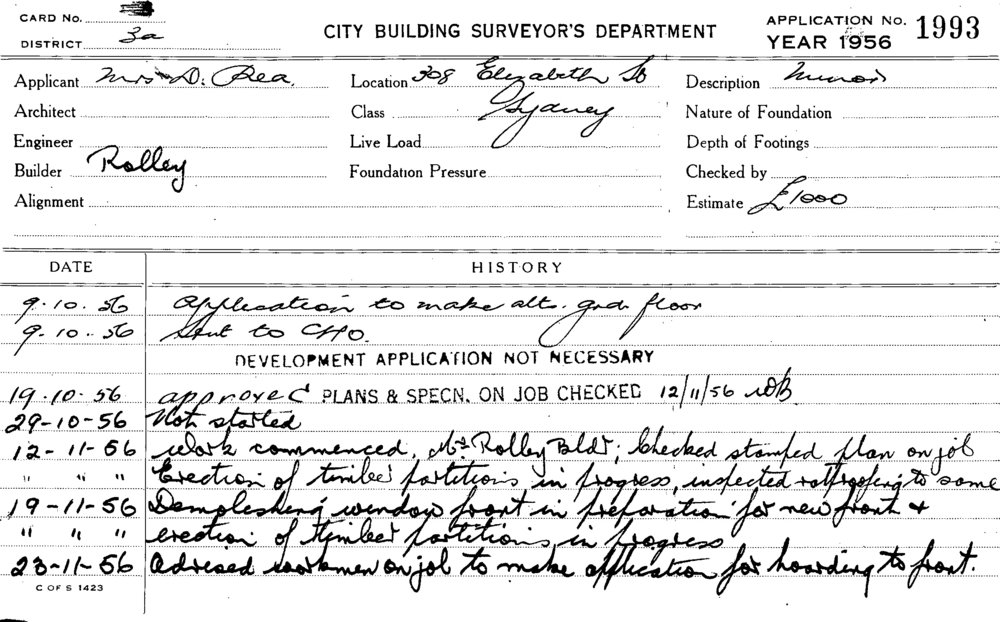 CARD No.
DISTRICT 3a
CITY BUILDING SURVEYOR'S DEPARTMENT
APPLICATION No. 1993
YEAR 1956
Applicant Mrs D. Rea. Location 308 Elizabeth St Description Minor
Architect Class Sydney Nature of Foundation
Engineer Live Load Depth of Footings
Builder Rolley Foundation Pressure Checked by
Alignment Estimate £1000
DATE HISTORY
9.10.56 Application to make alts. grd. floor
9.10.56 Sent to CHO.
DEVELOPMENT APPLICATION NOT NECESSARY
19.10.56 approved PLANS & SPECN. ON JOB CHECKED 12/11/56
29-10-56 Not started
12-11-56 Work commenced, Mr Rolley Bldr; Checked stamped plan on job
" " " Erection of timber partitions in progress, inspected ratproofing to same
19-11-56 Demolishing window front in preparation for new front &
" " " erection of timber partitions in progress
23-11-56 Advised workmen on job to make application for hoarding to front.
C OF S 1423